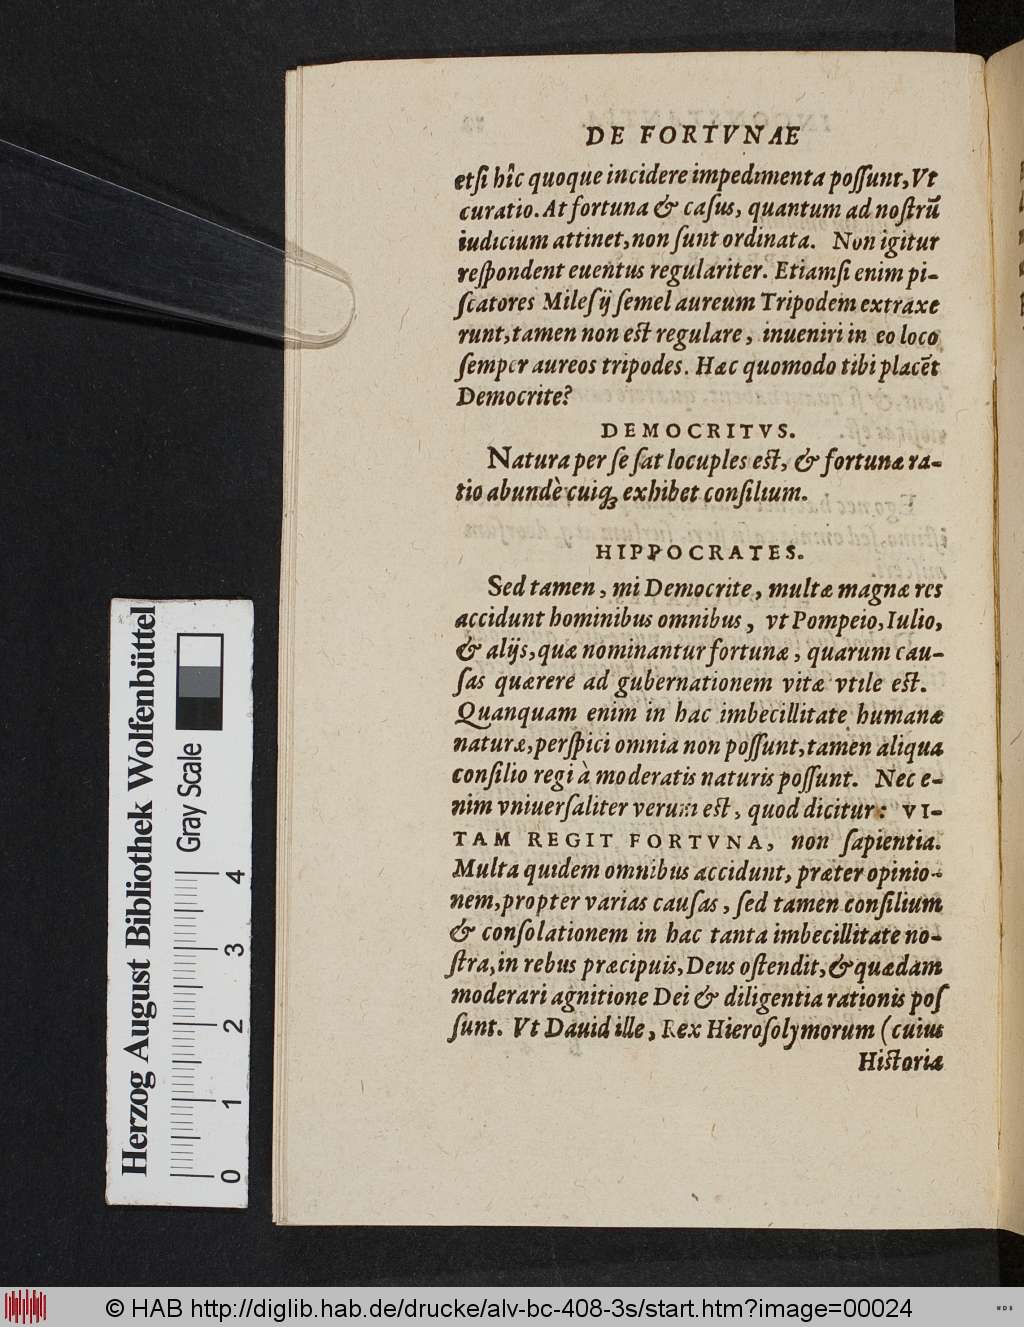 DE FORTVNAE
etſi hîc quoque incidere impedimenta poſſunt, Vt
curatio. At fortuna & caſus, quantum ad noſtrū
iudicium attinet, non ſunt ordinata. Non igitur
reſpondent euentus regulariter. Etiamſi enim pi-
ſcatores Mileſij ſemel aureum Tripodem extraxe
runt, tamen non eſt regulare, inueniri in eo loco
ſemper aureos tripodes. Hæc quomodo tibi placēt
Democrite?
DEMOCRITVS.
Natura per ſe ſat locuples eſt, & fortunæ ra-
tio abundè cuiqꝫ exhibet conſilium.
HIPPOCRATES.
Sed tamen, mi Democrite, multæ magnæ res
accidunt hominibus omnibus, vt Pompeio, Iulio,
& alijs, quæ nominantur fortunæ, quarum cau-
ſas quærere ad gubernationem vitæ vtile eſt.
Quanquam enim in hac imbecillitate humanæ
naturæ, perſpici omnia non poſſunt, tamen aliqua
conſilio regi à moderatis naturis poſſunt. Nec e-
nim vniuerſaliter verum eſt, quod dicitur: VI-
TAM REGIT FORTVNA, non ſapientia.
Multa quidem omnibus accidunt, præter opinio-
nem, propter varias cauſas, ſed tamen conſilium
& conſolationem in hac tanta imbecillitate no-
ſtra, in rebus præcipuis, Deus oſtendit, & quædam
moderari agnitione Dei & diligentia rationis poſ
ſunt. Vt Dauid ille, Rex Hieroſolymorum (cuius
Hiſtoriæ
Herzog August Bibliothek Wolfenbüttel
Gray Scale
0 1 2 3 4
© HAB http://diglib.hab.de/drucke/alv-bc-408-3s/start.htm?image=00024